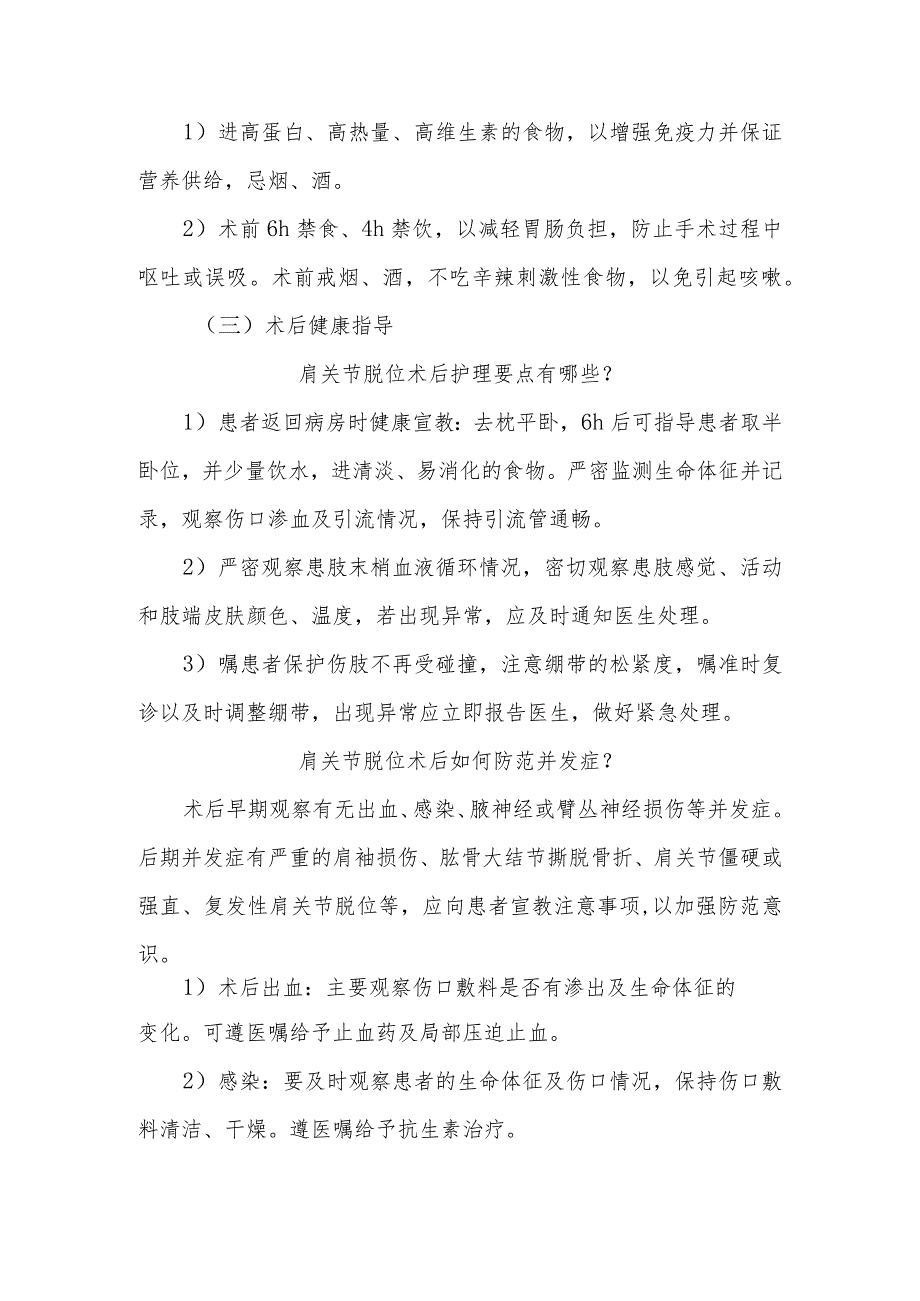 1）进高蛋白、高热量、高维生素的食物，以增强免疫力并保证
营养供给，忌烟、酒。
2）术前6h禁食、4h禁饮，以减轻胃肠负担，防止手术过程中
呕吐或误吸。术前戒烟、酒，不吃辛辣刺激性食物，以免引起咳嗽。
（三）术后健康指导
肩关节脱位术后护理要点有哪些？
1）患者返回病房时健康宣教：去枕平卧，6h后可指导患者取半
卧位，并少量饮水，进清淡、易消化的食物。严密监测生命体征并记
录，观察伤口渗血及引流情况，保持引流管通畅。
2）严密观察患肢末梢血液循环情况，密切观察患肢感觉、活动
和肢端皮肤颜色、温度，若出现异常，应及时通知医生处理。
3）嘱患者保护伤肢不再受碰撞，注意绷带的松紧度，嘱准时复
诊以及时调整绷带，出现异常应立即报告医生，做好紧急处理。
肩关节脱位术后如何防范并发症？
术后早期观察有无出血、感染、腋神经或臂丛神经损伤等并发症。
后期并发症有严重的肩袖损伤、肱骨大结节撕脱骨折、肩关节僵硬或
强直、复发性肩关节脱位等，应向患者宣教注意事项,以加强防范意
识。
1）术后出血：主要观察伤口敷料是否有渗出及生命体征的
变化。可遵医嘱给予止血药及局部压迫止血。
2）感染：要及时观察患者的生命体征及伤口情况，保持伤口敷
料清洁、干燥。遵医嘱给予抗生素治疗。